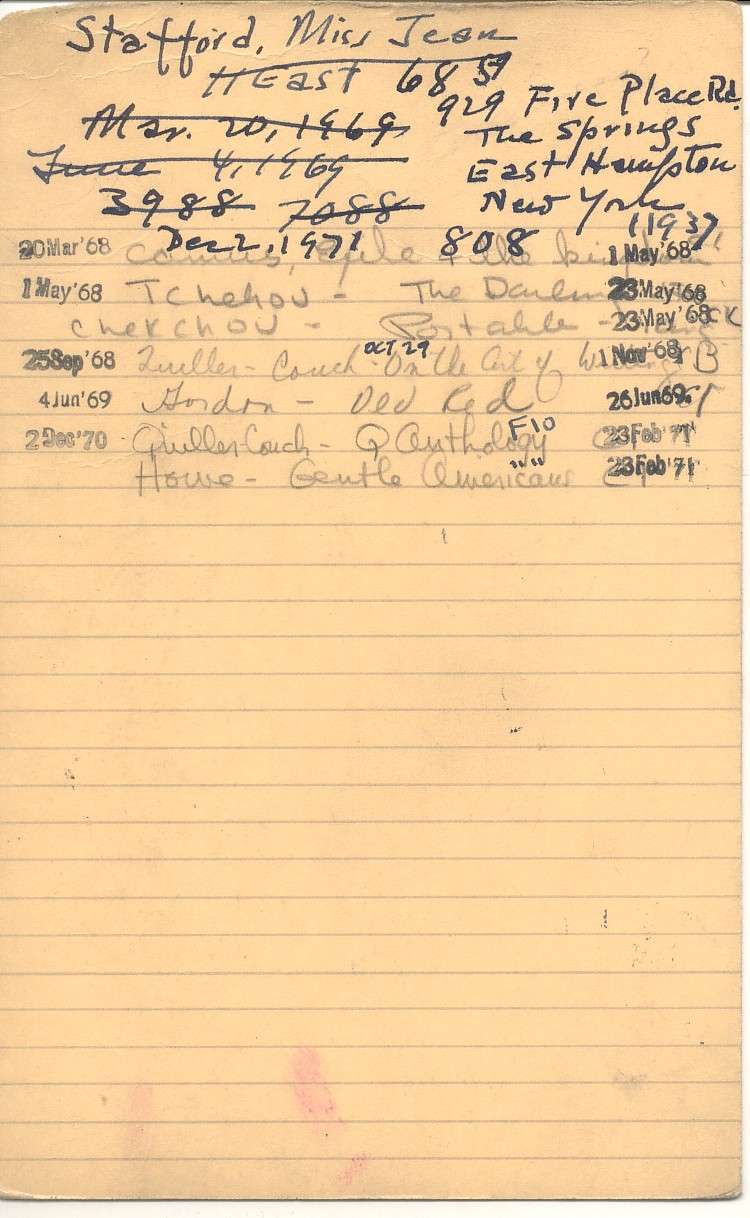 Stafford, Miss Jean
HEast 6859
929 Fire Place Rd.
Mar. 20, 1969 The Springs
June 4, 1969 East Hampton
3988 7088 New York
11937
Dec 2, 1971 808
20 Mar '68 Camus, Exile & the Kingdom 1 May '68
1 May '68 Tchehov - The Darling 23 May '68
Chekchov - Portable - 23 May '68 CK
OCT 29
25 Sep '68 Quiller-Couch - On the Art of Writing 1 Nov '68 B
4 Jun '69 Gordon - Old Red 26 Jun 69
F10
2 Dec '70 Quiller-Couch - Q Anthology 23 Feb '71
" "
Howe - Gentle Americans 23 Feb '71